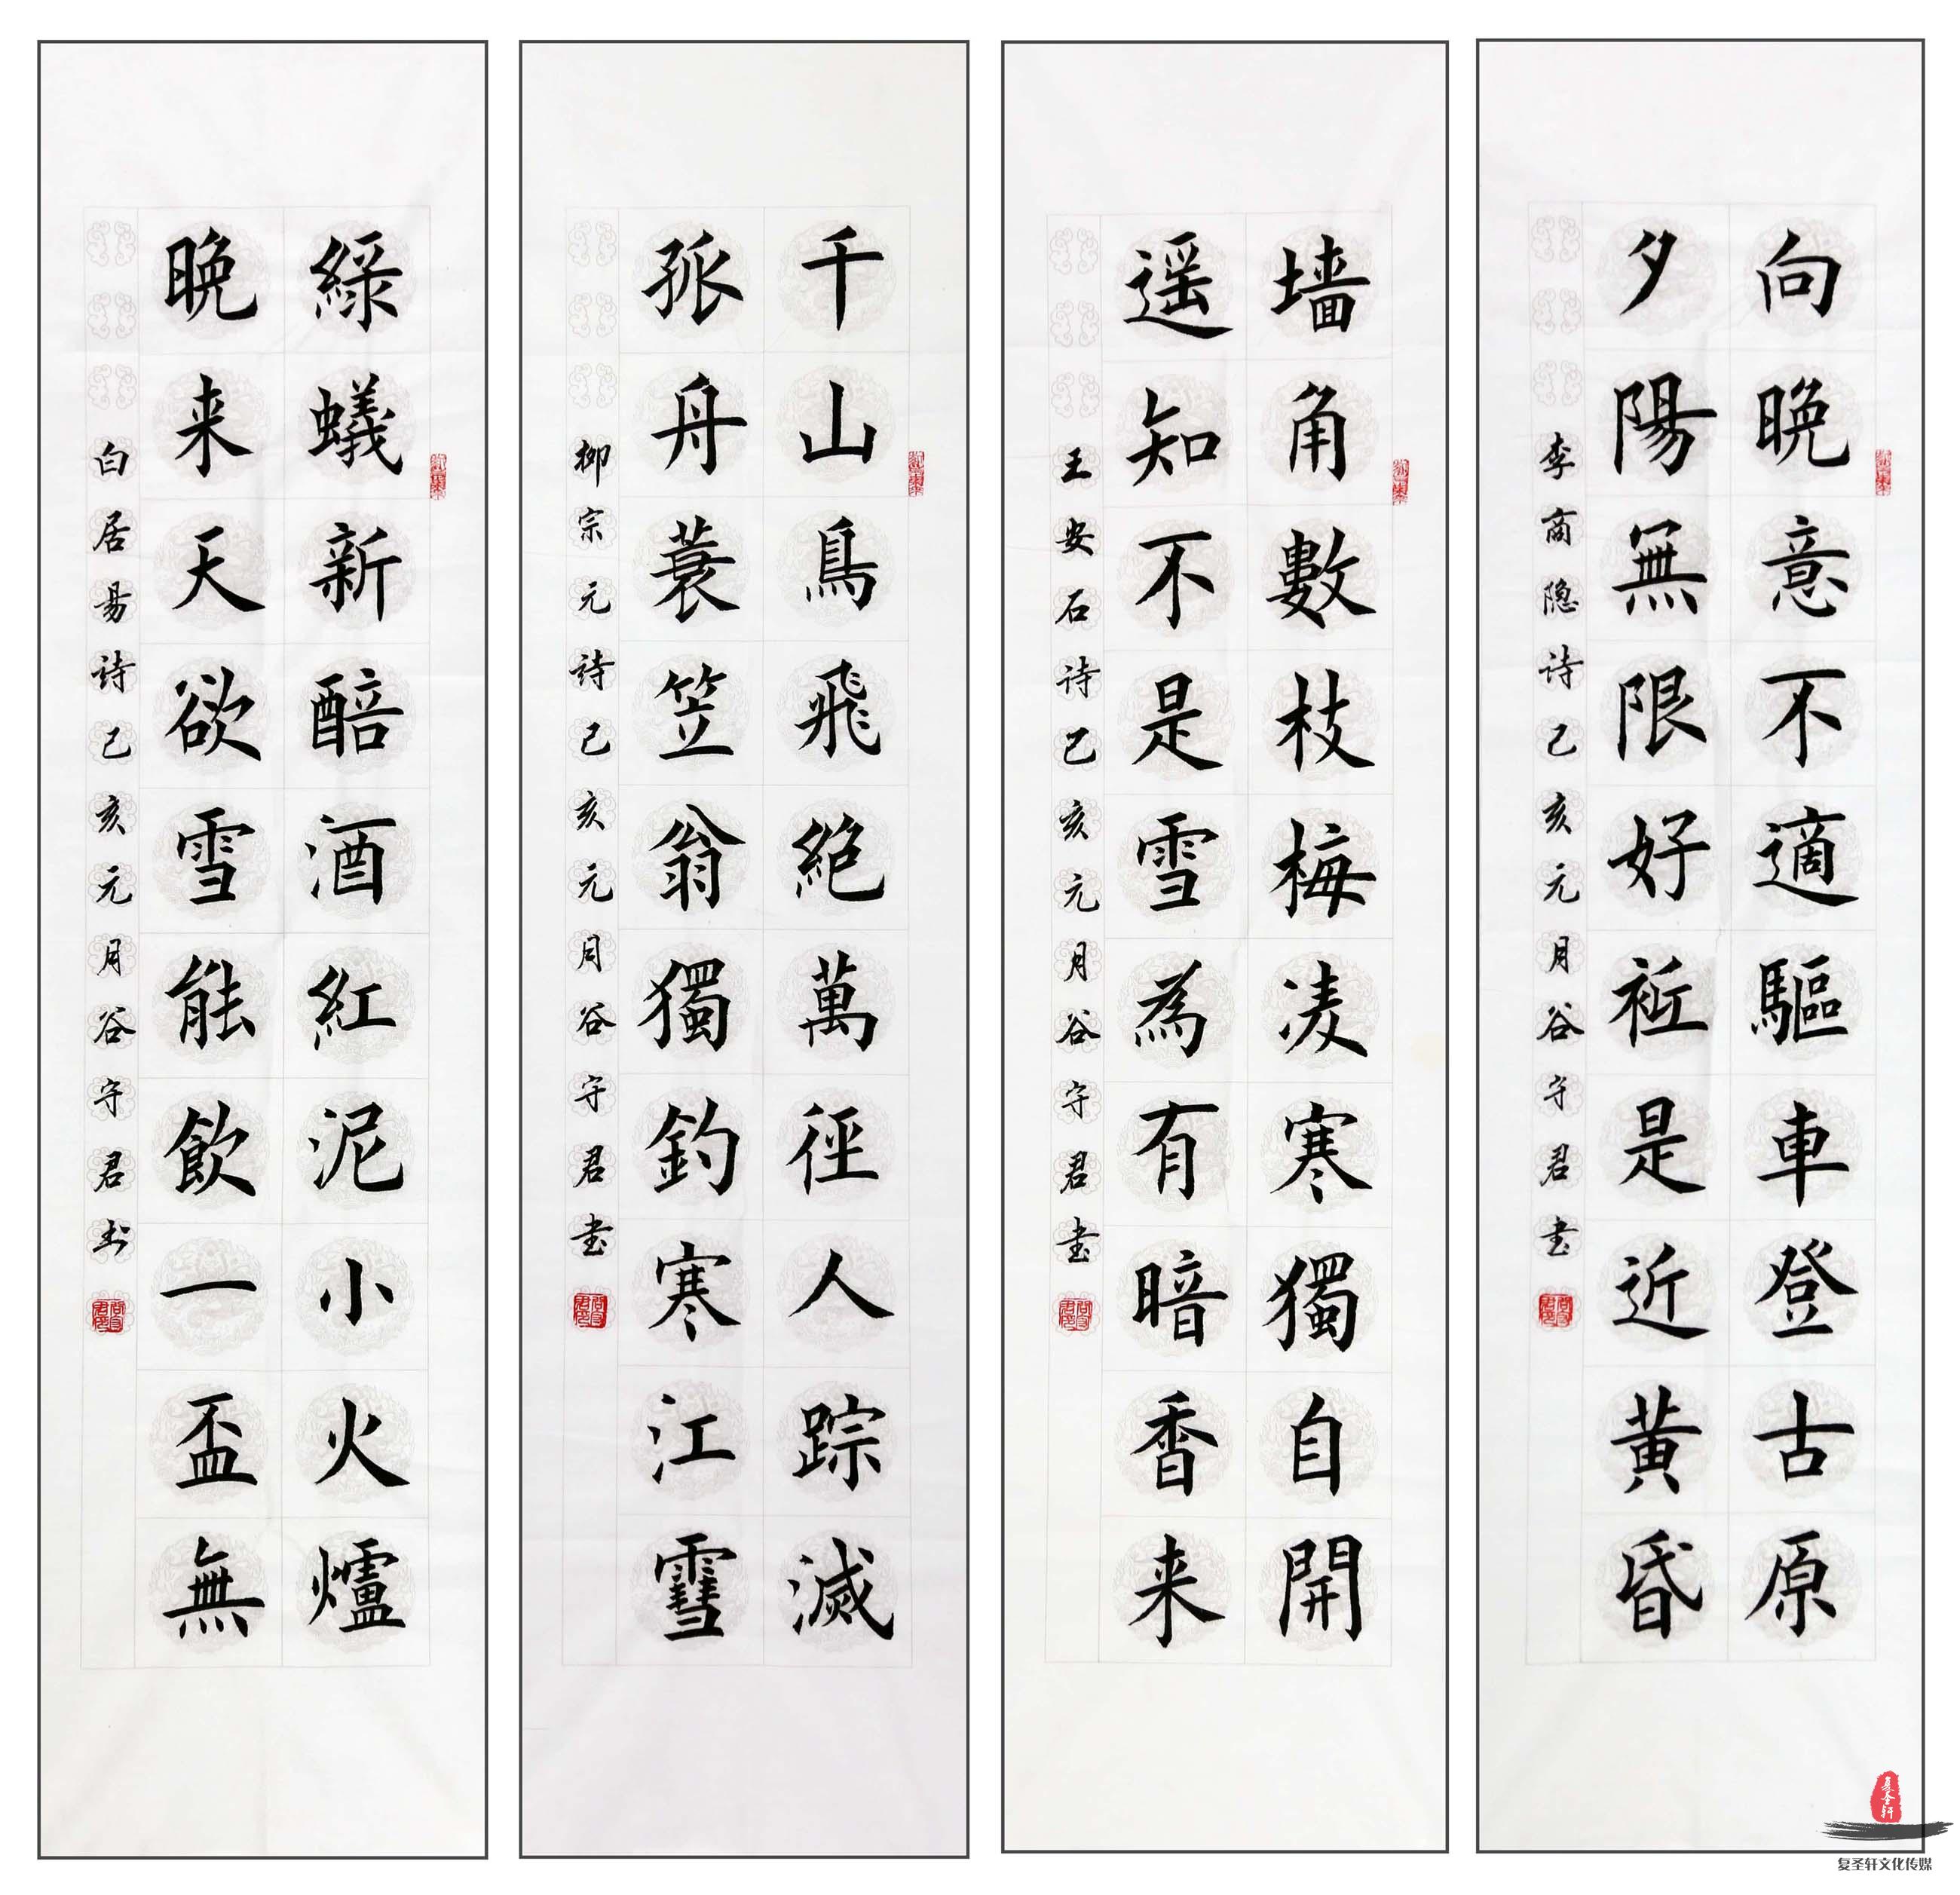 向晚意不適驅車登古原
夕陽無限好衹是近黄昏
李商隐诗己亥元月谷守君書
墙角數枝梅凌寒獨自開
遥知不是雪為有暗香来
王安石诗己亥元月谷守君書
千山鳥飛絶萬徑人踪滅
孤舟蓑笠翁獨釣寒江雪
柳宗元詩己亥元月谷守君書
緑蟻新醅酒紅泥小火爐
晚来天欲雪能飲一盃無
白居易詩己亥元月谷守君书
复圣轩
复圣轩文化传媒